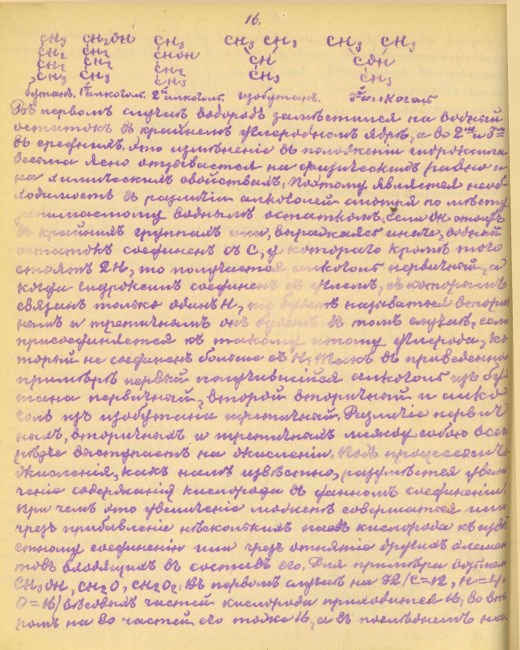 16.
CH₃ CH₂OH CH₃ CH₃ CH₃ CH₃ CH₃
CH₂ CH₂ CHOH CH COH
CH₂ CH₂ CH₂ CH₃ CH₃
CH₃ CH₃ CH₃
бутанъ. 1й алкоголь. 2й алкоголь изобутанъ. 3й алкоголь
Въ первомъ случаѣ водородъ замѣстился на водный
остатокъ въ крайнемъ углеродномъ ядрѣ, а во 2мъ и 3мъ
въ среднихъ. Это измѣненіе въ положеніи гидроксила
весьма ясно отзывается на физическихъ равно и
на химическихъ свойствахъ. Поэтому является необ-
ходимость въ различіи алкоголей смотря по мѣсту
занимаемому воднымъ остаткомъ. Если OH стоитъ
въ крайнихъ группахъ или, выражаясь иначе, водный
остатокъ соединенъ съ C, у котораго кромѣ того
стоятъ 2H, то получается алкоголь первичный, а
когда гидроксилъ соединенъ съ углемъ, съ которымъ
связанъ только одинъ H, то будетъ называться вторич
нымъ и третичнымъ онъ будетъ въ томъ случаѣ, если
присоединяется къ такому атому углерода, ко
торый не соединенъ больше съ H. Такъ въ приведенномъ
примѣрѣ первый получившійся алкоголь изъ бу-
тана первичный, второй вторичный и алко
голь изъ изобутана третичный. Различіе первич
ныхъ, вторичныхъ и третичныхъ между собою
рѣзче выступаетъ на окисленіи. Подъ процессомъ
окисленія, какъ намъ извѣстно, разумѣется увели
ченіе содержанія кислорода въ данномъ соединеніи
При чемъ это увеличеніе можетъ совершаться или
чрезъ прибавленіе нѣсколькихъ паевъ кислорода къ извѣ
стному соединенію или чрезъ отнятіе другихъ элемен
товъ входящихъ въ составъ его. Для примѣра возьмемъ
CH₃OH, CH₂O, CH₂O₂. Въ первомъ случаѣ на 32 /C=12, H=4,
O=16/ вѣсовыхъ частей кислорода приходится 16, во вто
ромъ на 30 частей его тоже 16, а въ послѣднемъ на